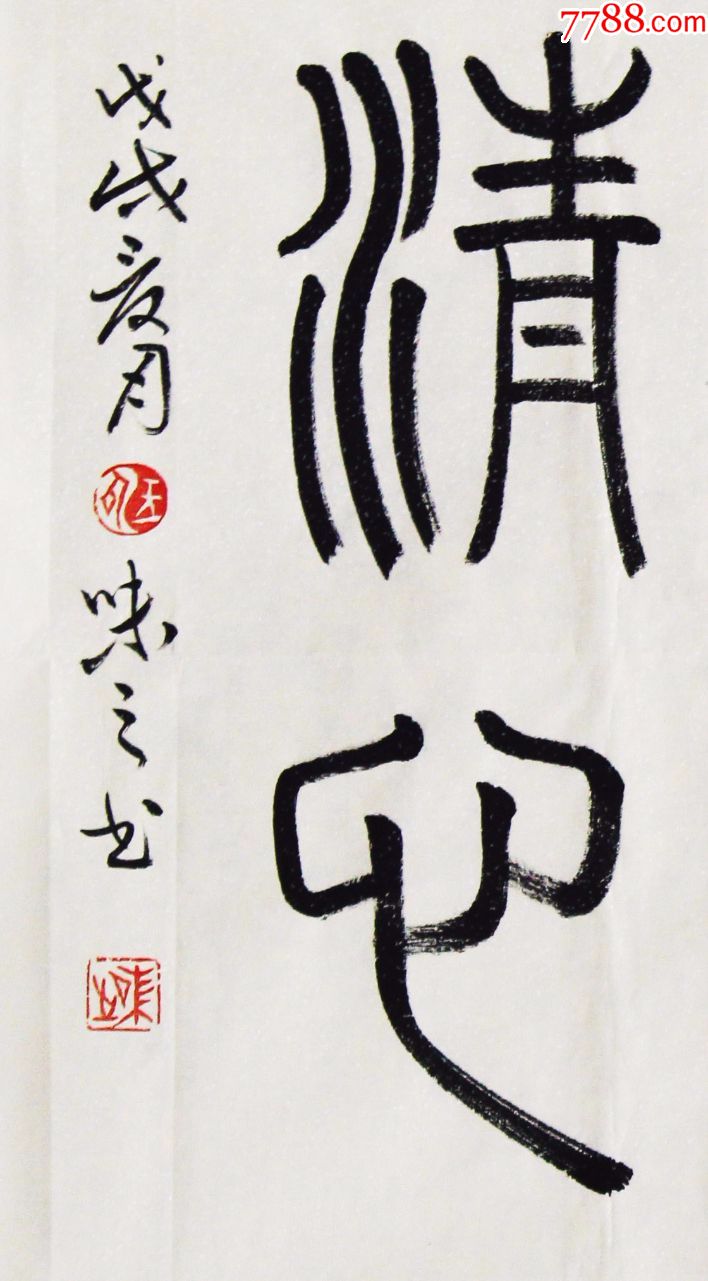 7788.com
清心
戊戌夏月
味之书